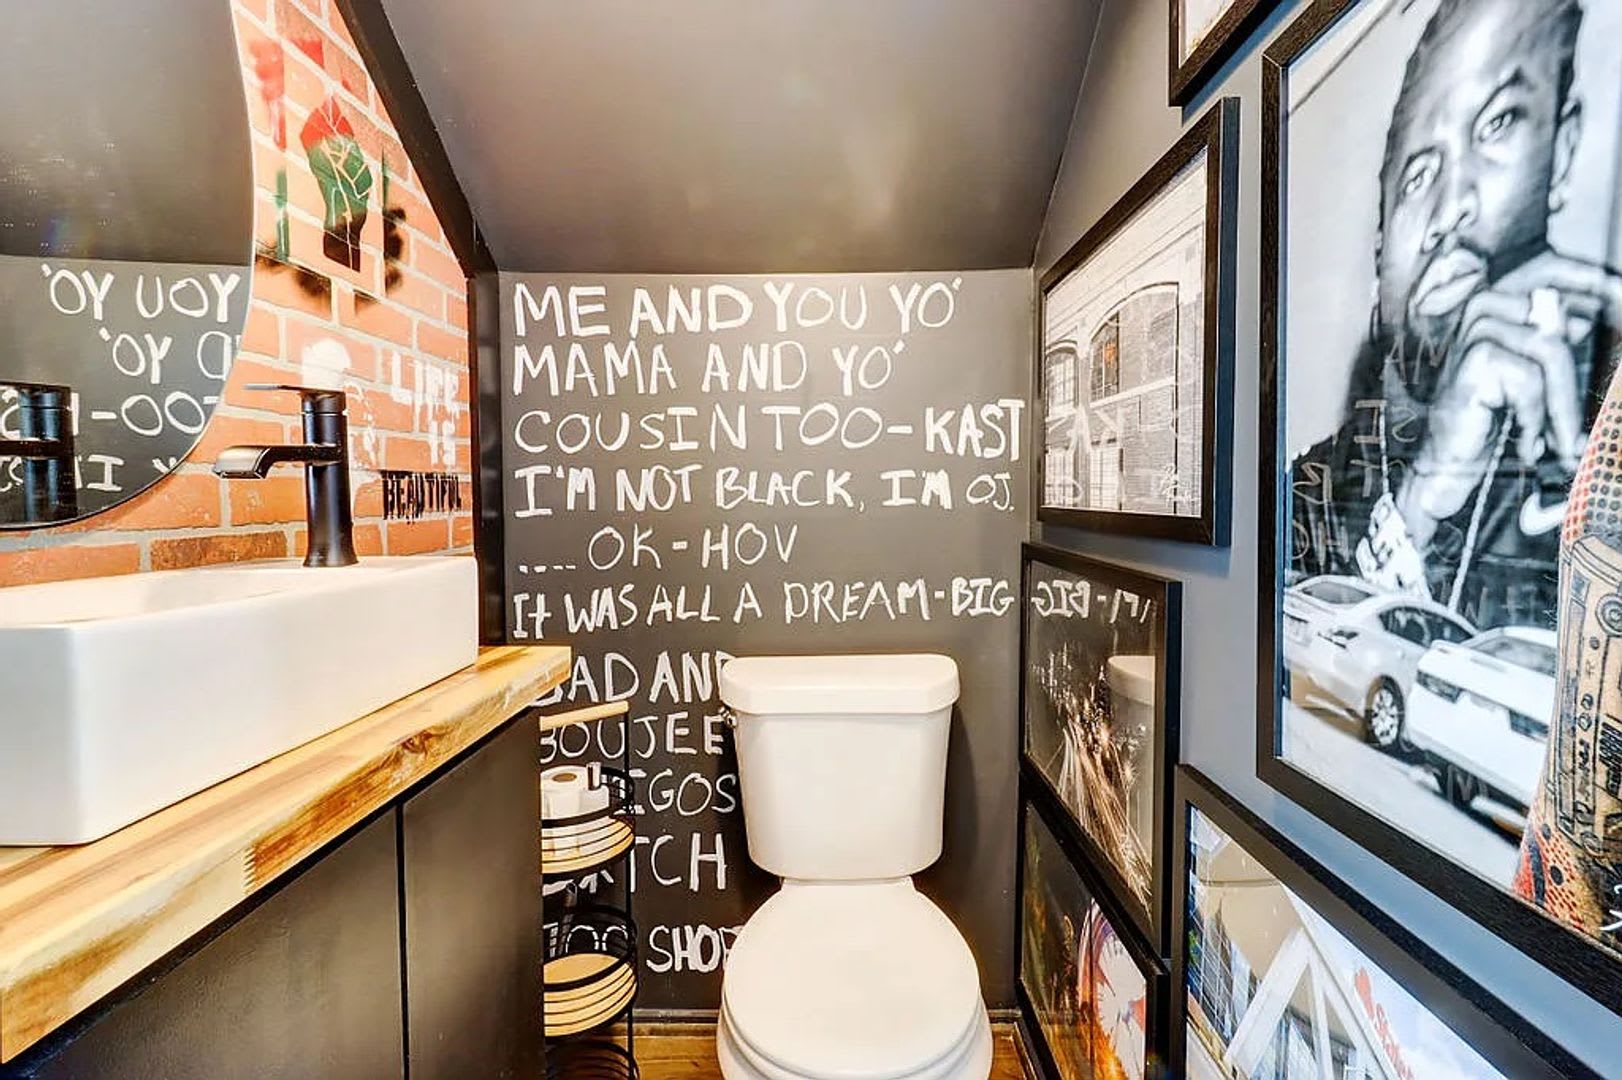 ME AND YOU YO'
MAMA AND YO'
COUSIN TOO-KAST
I'M NOT BLACK, I'M OJ.
.... OK-HOV
It WAS ALL A DREAM-BIG
BAD AND
BOUJEE
IGOS
TCH
TOO SHOR
LIFE
IS
BEAUTIFUL